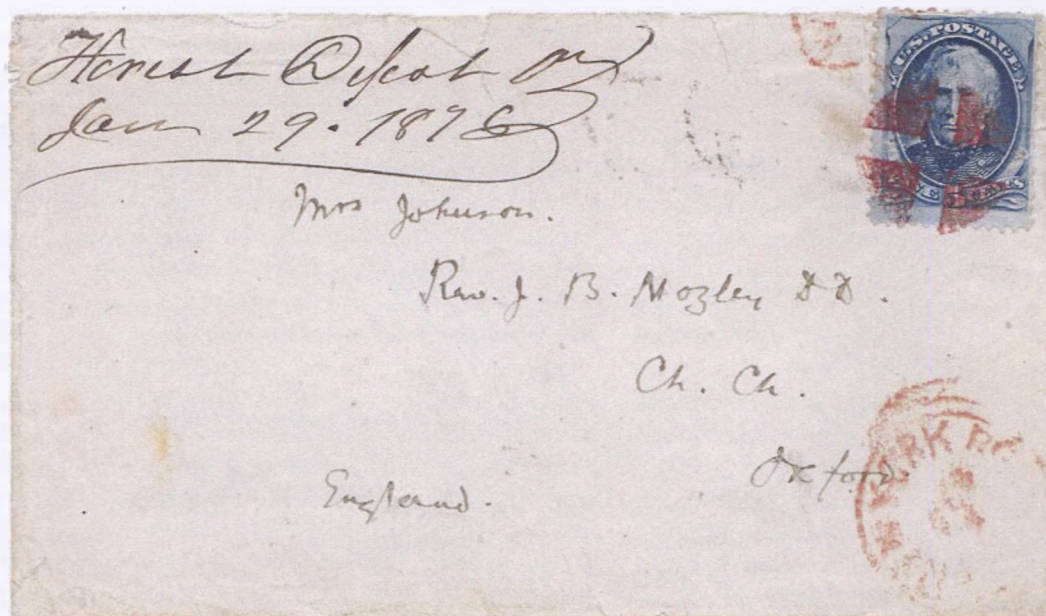 Forest Depot Va
Jan 29. 1876
U.S. POSTAGE
Mrs Johnson.
Rev. J. B. Mozley DD.
Ch. Ch.
Oxford.
England.
NEW YORK